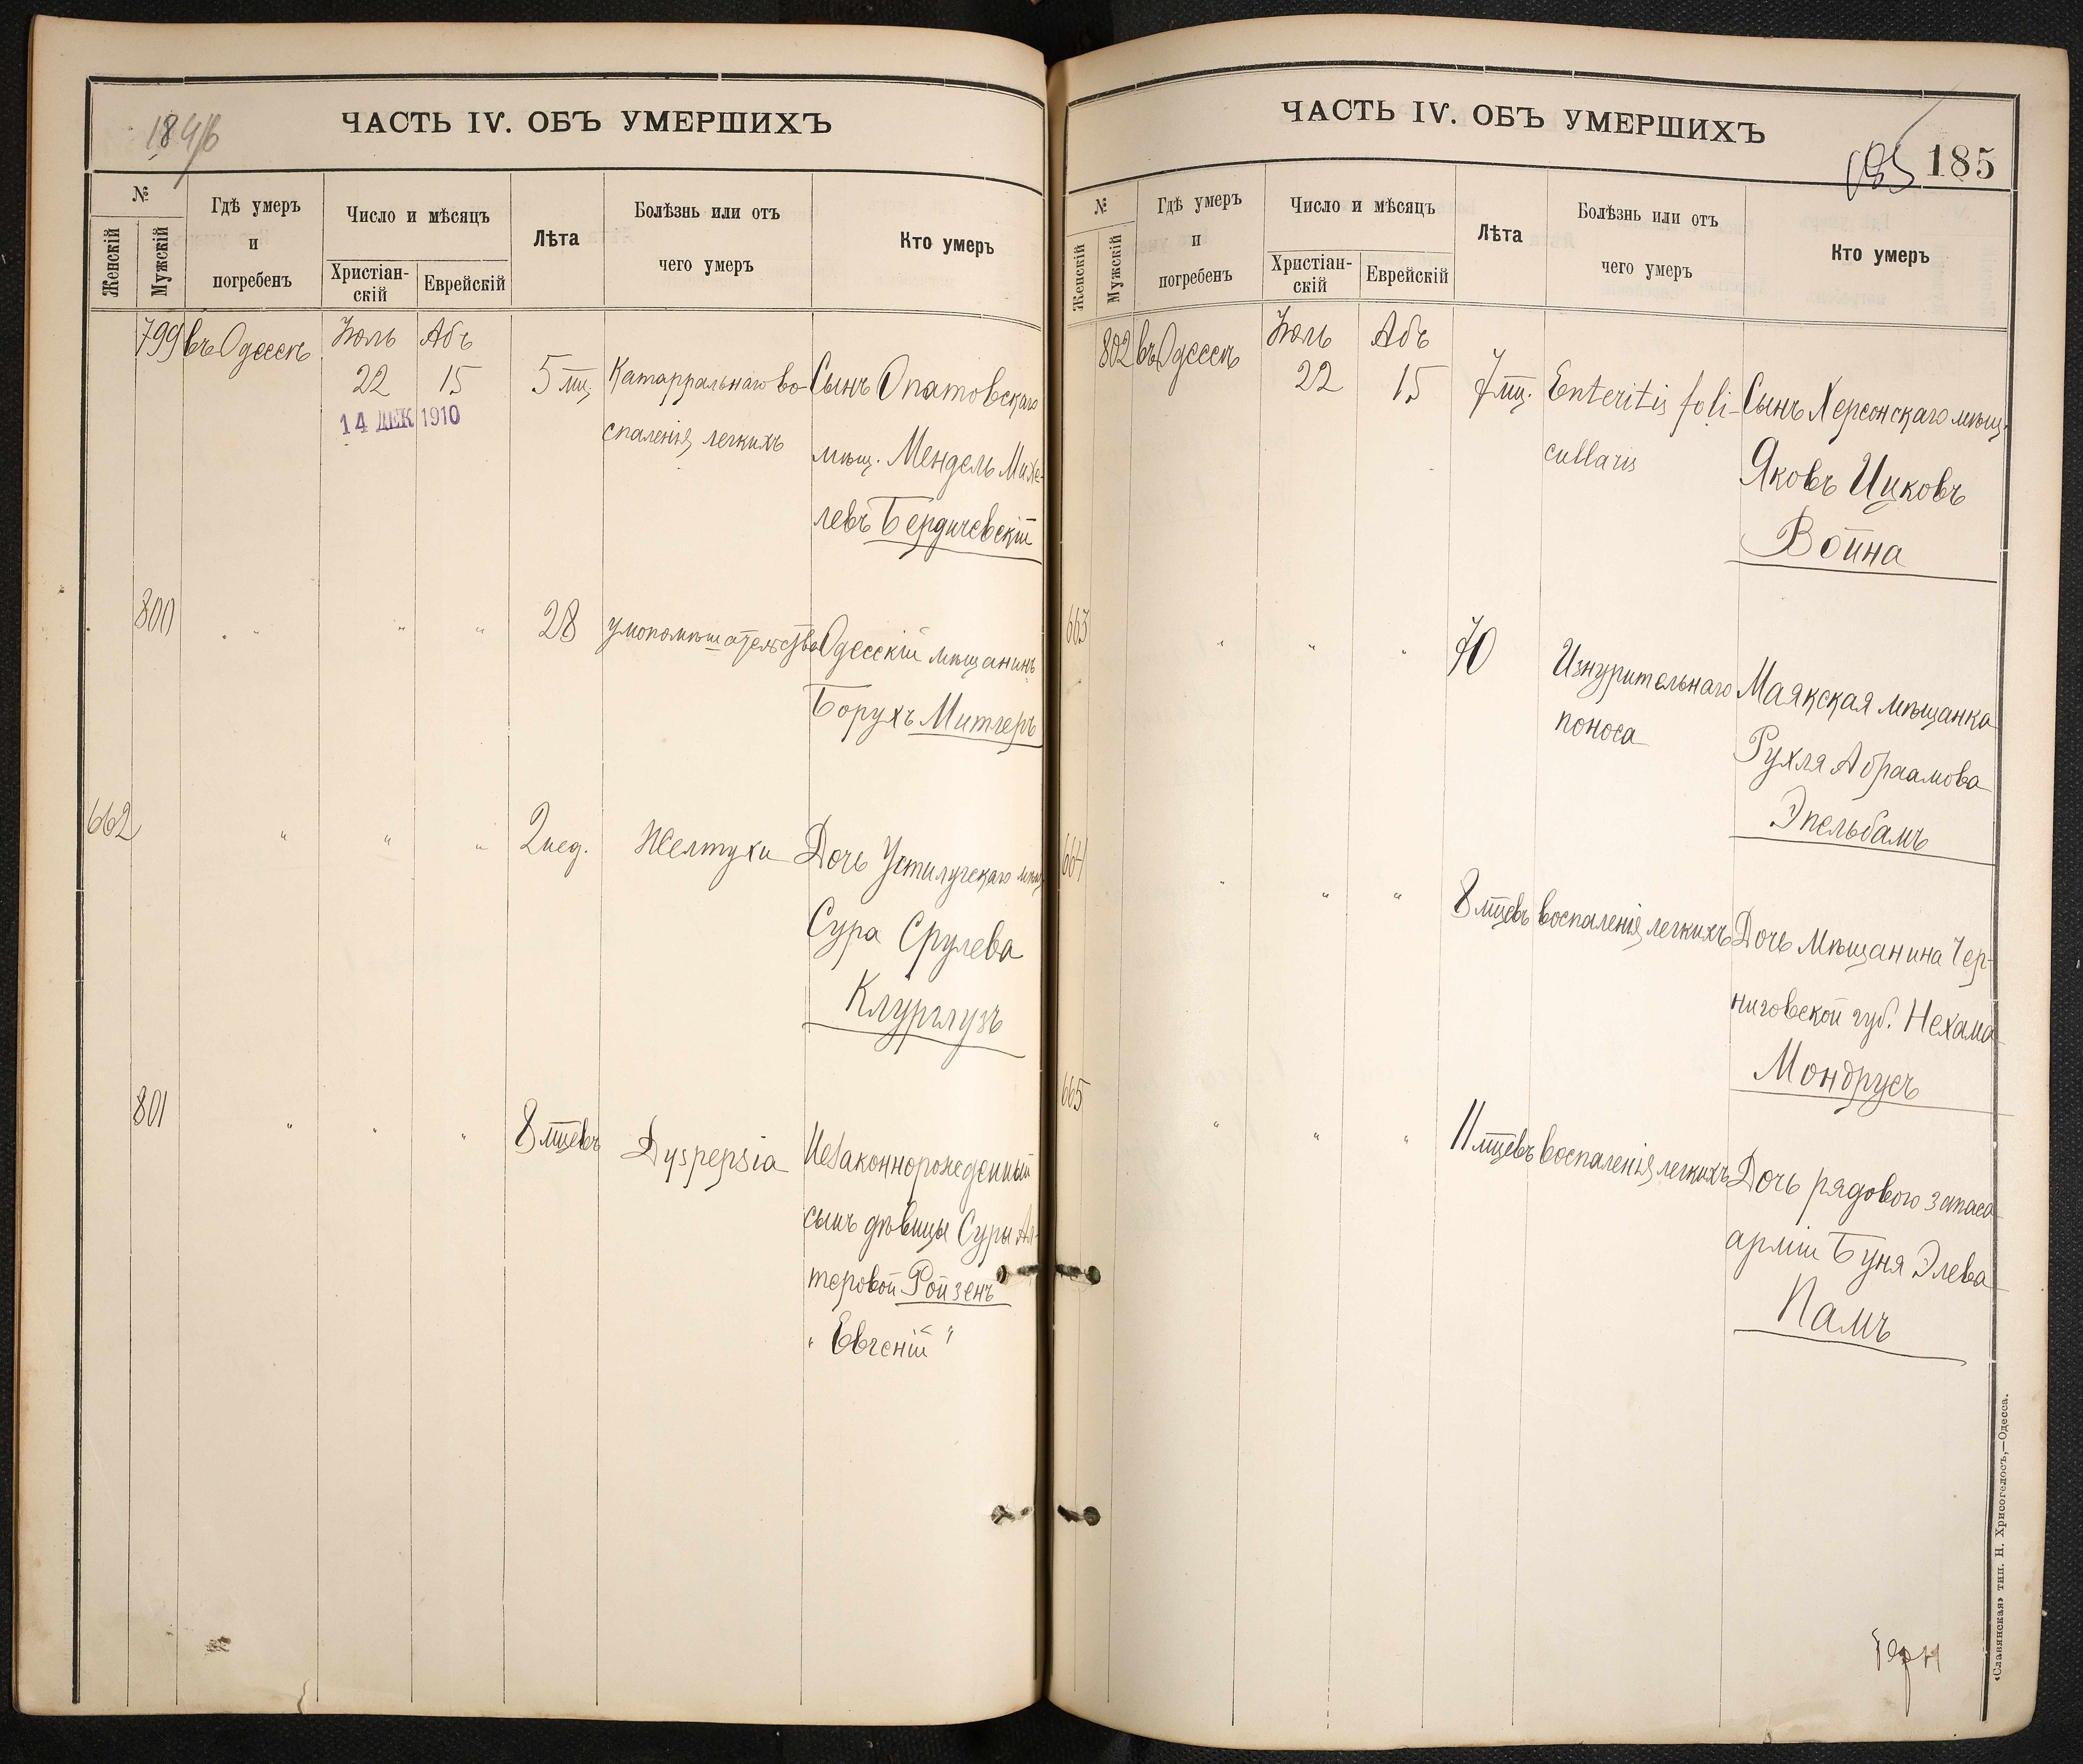 184об
ЧАСТЬ IV. ОБЪ УМЕРШИХЪ
№
Женскій
Мужскій
Гдѣ умеръ
и
погребенъ
Число и мѣсяцъ
Христіан-
скій
Еврейскій
Лѣта
Болѣзнь или отъ
чего умеръ
Кто умеръ
799 въ Одессѣ Іюль Абъ
22 15 5 мц. Катарральнаго во- Сынъ Опатовскаго
14 ДЕК 1910
спаленія легкихъ мѣщ. Мендель Михе-
левъ Бердичевскій
800 " " " 28 умопомѣшательства Одесскій мѣщанинъ
Борухъ Митлеръ
662 " " " 2 нед. Желтухи Дочь Устилугскаго мѣщ.
Сура Срулева
Клурглузъ
801 " " " 8 мцевъ Dyspepsia Незаконнорожденный
сынъ дѣвицы Суры Ал-
теровой Ройзенъ
"Евгеній"
ЧАСТЬ IV. ОБЪ УМЕРШИХЪ
185 185
№
Женскій
Мужскій
Гдѣ умеръ
и
погребенъ
Число и мѣсяцъ
Христіан-
скій
Еврейскій
Лѣта
Болѣзнь или отъ
чего умеръ
Кто умеръ
802 въ Одессѣ Іюль Абъ
22 15 7 мц. Enteritis foli- Сынъ Херсонскаго мѣщ.
cullaris Яковъ Ицковъ
Война
663 " " " 70 Изнурительнаго Маякская мѣщанка
поноса Рухля Абраамова
Эпельбамъ
664 " " " 8 мцевъ воспаленія легкихъ Дочь мѣщанина Чер-
ниговской губ. Нехама
Мондрусъ
665 " " " 11 мцевъ воспаленія легкихъ Дочь рядового запаса
арміи Буня Элева
Памъ
«Славянская» тип. Н. Хрисогелосъ,—Одесса.